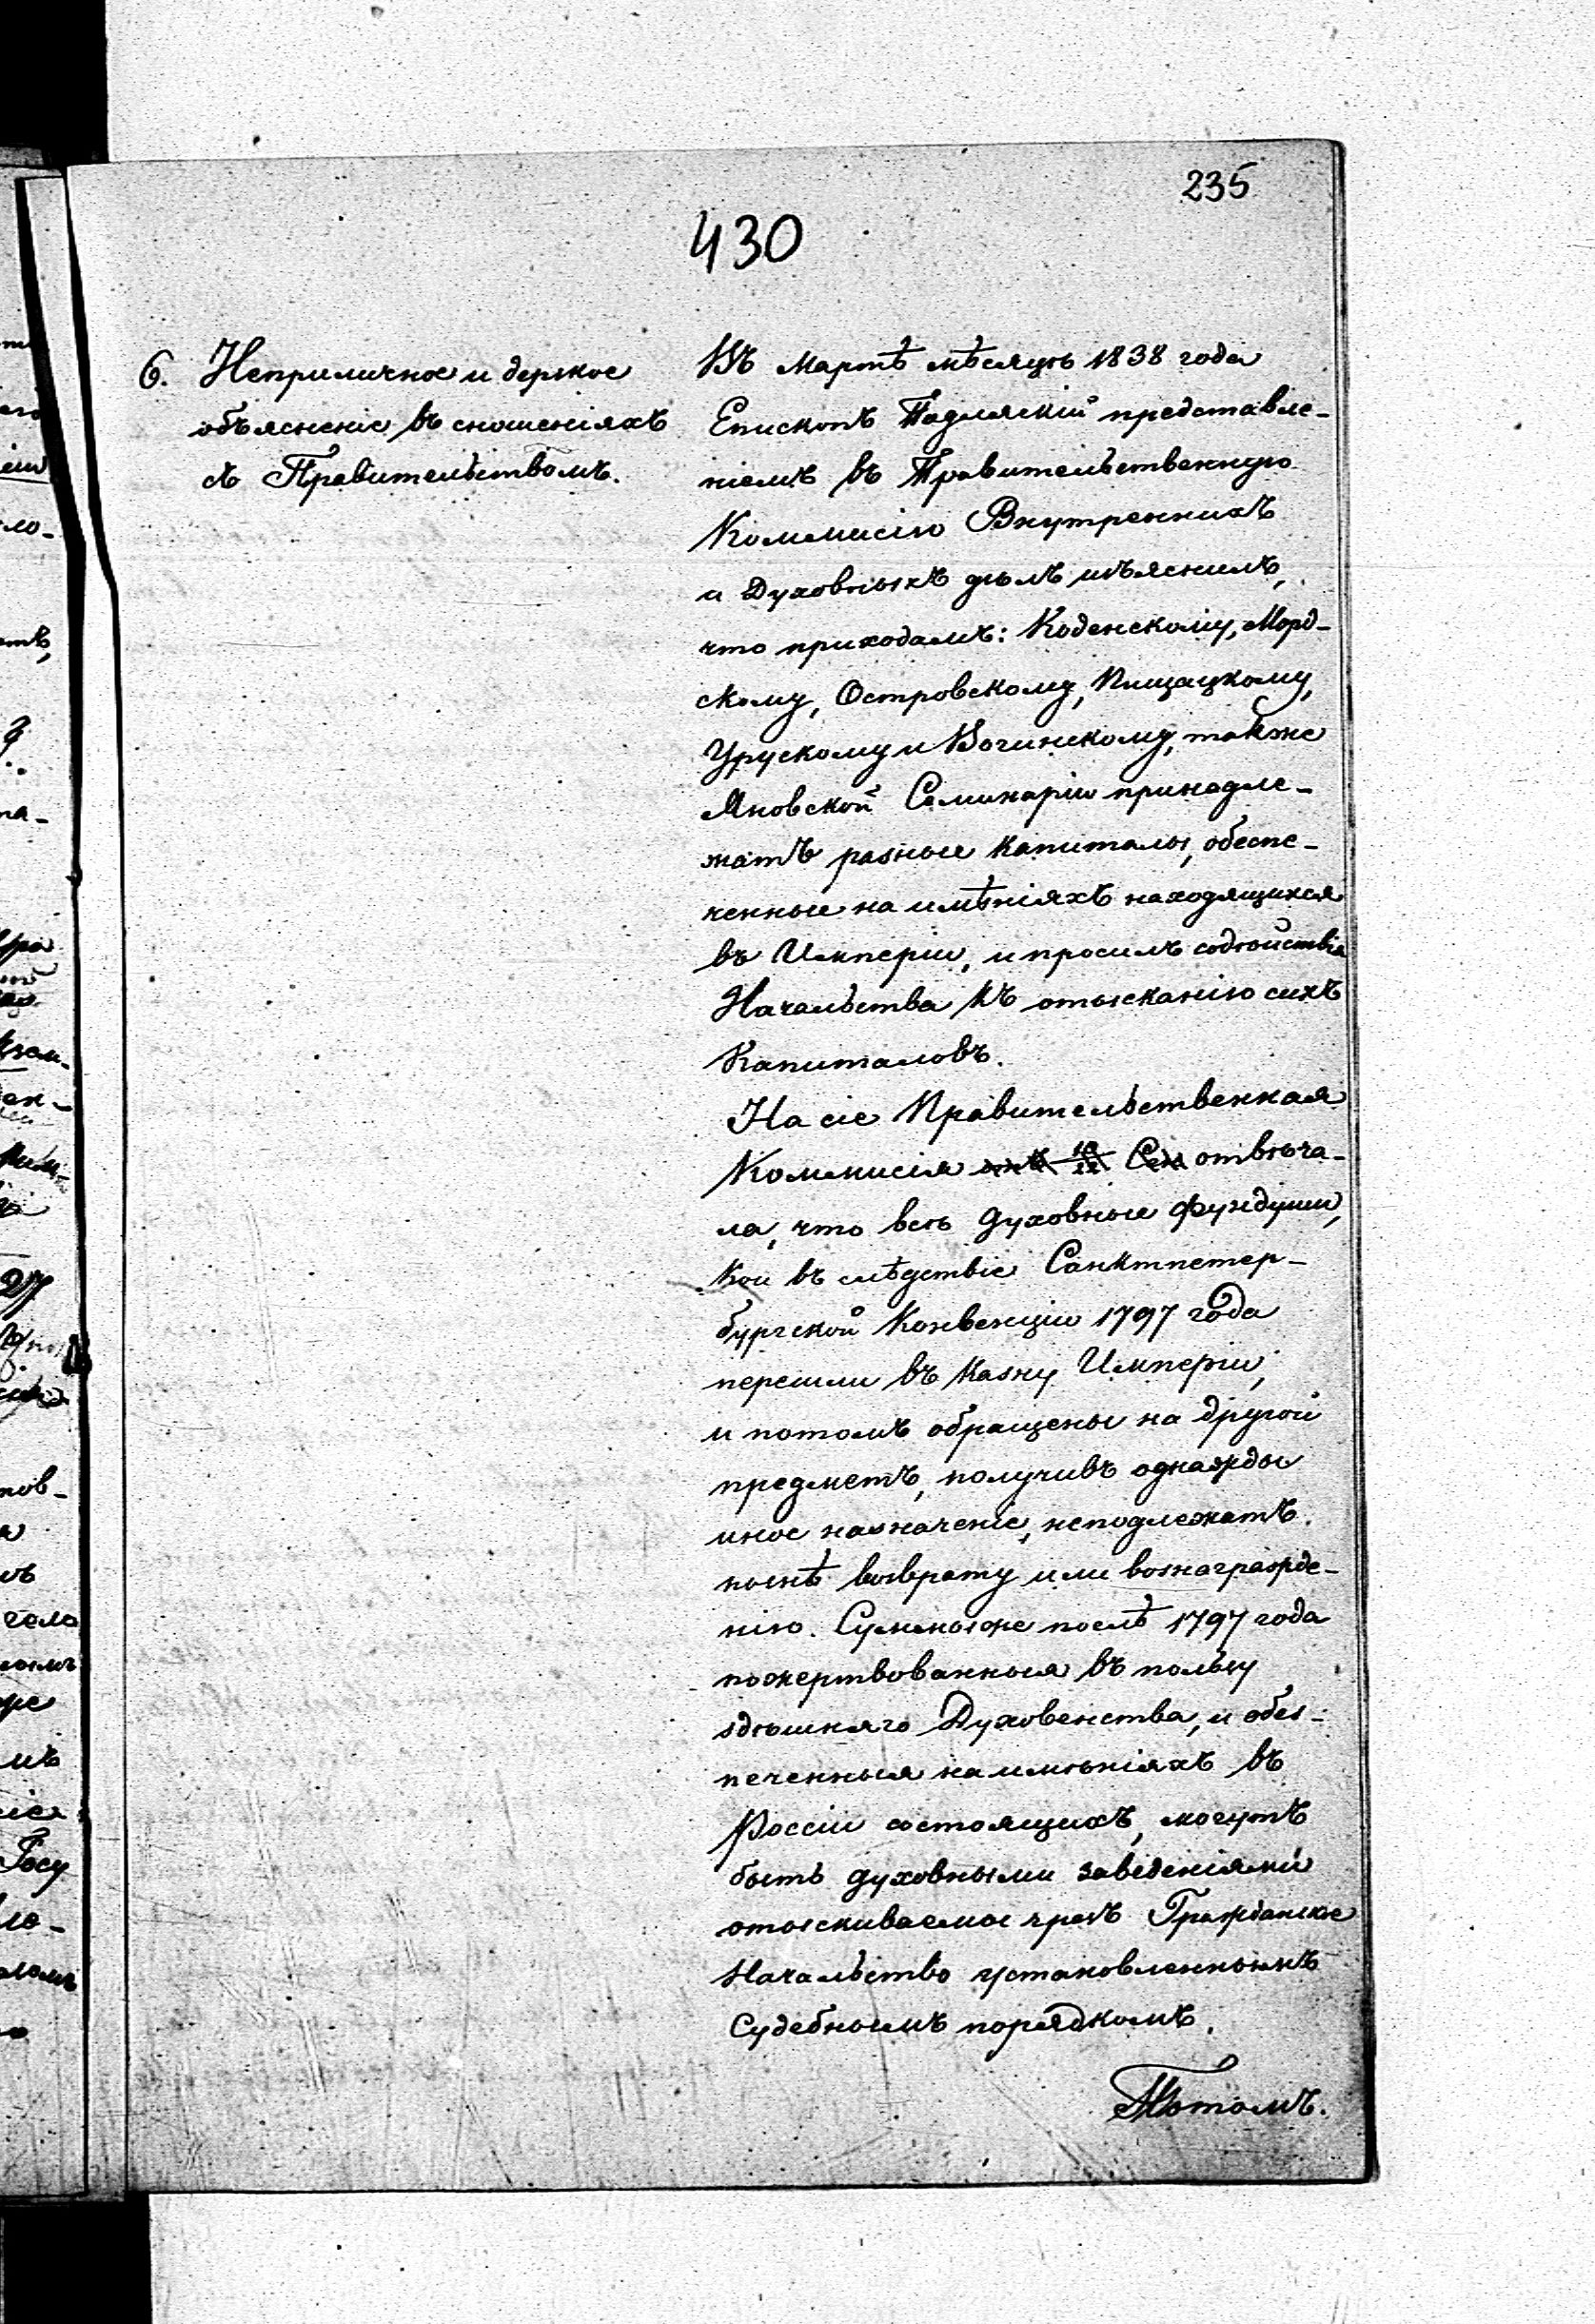 235
430
6. Неприличное и дерзкое
объясненіе въ сношеніяхъ
съ Правительствомъ.
Въ Мартѣ мѣсяцѣ 1838 года
Епископъ Подляскій представле-
ніемъ въ Правительственную
Коммисію Внутреннихъ
и Духовныхъ дѣлъ изъяснилъ,
что приходамъ: Коденскому, Морд-
скому, Островскому, Пищацкому,
Урускому и Вогинскому, также
Яновской Семинаріи принадле-
жатъ разные капиталы, обеспе-
ченные на имѣніяхъ находящихся
въ Имперіи, и просилъ содѣйствія
Начальства къ отысканію сихъ
Капиталовъ.
На сіе Правительственная
Коммисія отъ Сен отвѣча-
ла, что всѣ духовные фундуши,
кои въ слѣдствіе Санктпетер-
бургской Конвенціи 1797 года
перешли въ казну Имперіи,
и потомъ обращены на другой
предметъ, получивъ однажды
иное назначеніе, неподлежатъ
нынѣ возврату или вознагражде-
нію. Суммыже послѣ 1797 года
пожертвованныя въ пользу
здѣшняго Духовенства, и обез-
печенныя на имѣніяхъ въ
Россіи состоящихъ, могутъ
быть духовными заведеніями
отыскиваемое чрезъ Гражданское
Начальство установленнымъ
судебнымъ порядкомъ.
Потомъ.